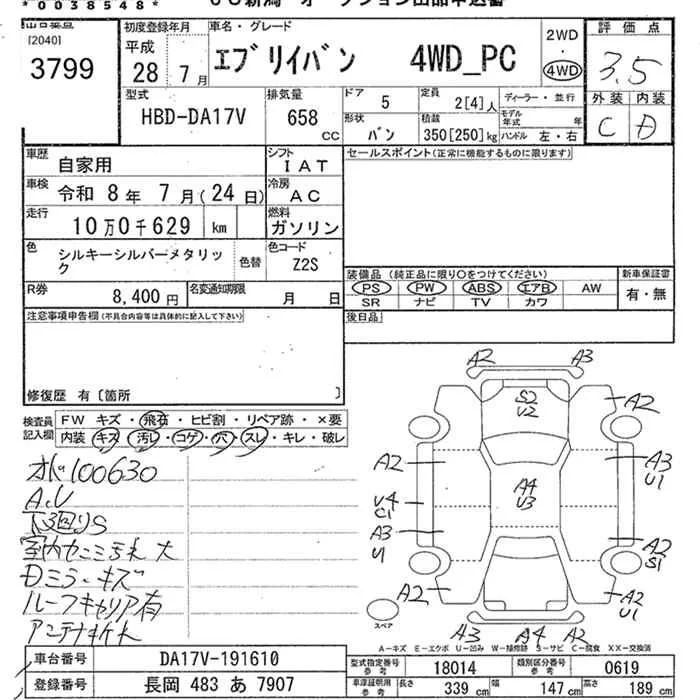 *0038548*
[2040]
3799
初度登録年月
平成
28年 7月
車名・グレード
エブリイバン 4WD_PC
2WD
・
4WD
評価点
3.5
外装 内装
C D
型式
HBD-DA17V
排気量
658 CC
ドア 5
定員 2[4]人
ディーラー・並行
形状 バン
積載 350[250]kg
モデル年式 年
ハンドル 左・右
車歴 自家用
シフト IAT
車検 令和 8年 7月(24日)
冷房 AC
走行 10万0千629 km
燃料 ガソリン
色 シルキーシルバーメタリック
色替
色コード Z2S
R券 8,400円
名変通知期限 月 日
セールスポイント(正常に機能するものに限ります)
装備品 (純正品に限り○をつけてください)
新車保証書
PS PW ABS エアB AW
有・無
SR ナビ TV カワ
後日品
注意事項申告欄(不具合内容等は具体的に記入して下さい)
修復歴 有〔箇所 〕
検査員記入欄
FW キズ・飛石・ヒビ割・リペア跡・×要
内装 キズ・汚レ・コゲ・穴・スレ・キレ・破レ
100630
A.V
下廻りS
大
Dミラーキズ
ルーフキャリア有
アンテナ折れ
A2 A3
S2
V2
A2 A2
A2 A3
U1
A4
V3
V4
C1
A3
U
A2
S1
A2 A2
U1
スペア
A3 A4 A2
A-キズ E-エクボ U-凹み W-補修跡 S-サビ C-腐食 XX-交換済
車台番号 DA17V-191610
登録番号 長岡 483 あ 7907
型式指定番号 参考 18014
類別区分番号 参考 0619
車庫証明用 参考
長さ 339 cm
幅 147 cm
高さ 189 cm